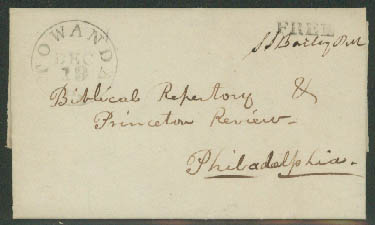 TOWANDA
DEC
19
FREE
S S Bailey PM
Biblical Repertory &
Princeton Review -
Philadelphia -